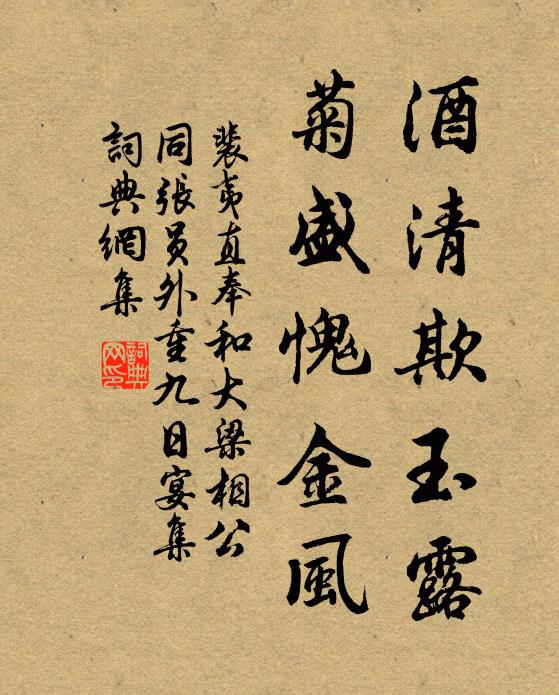 酒清欺玉露
菊盛愧金風
裴夷直奉和大梁相公
同張員外重九日宴集
詞典網集
詞典網印